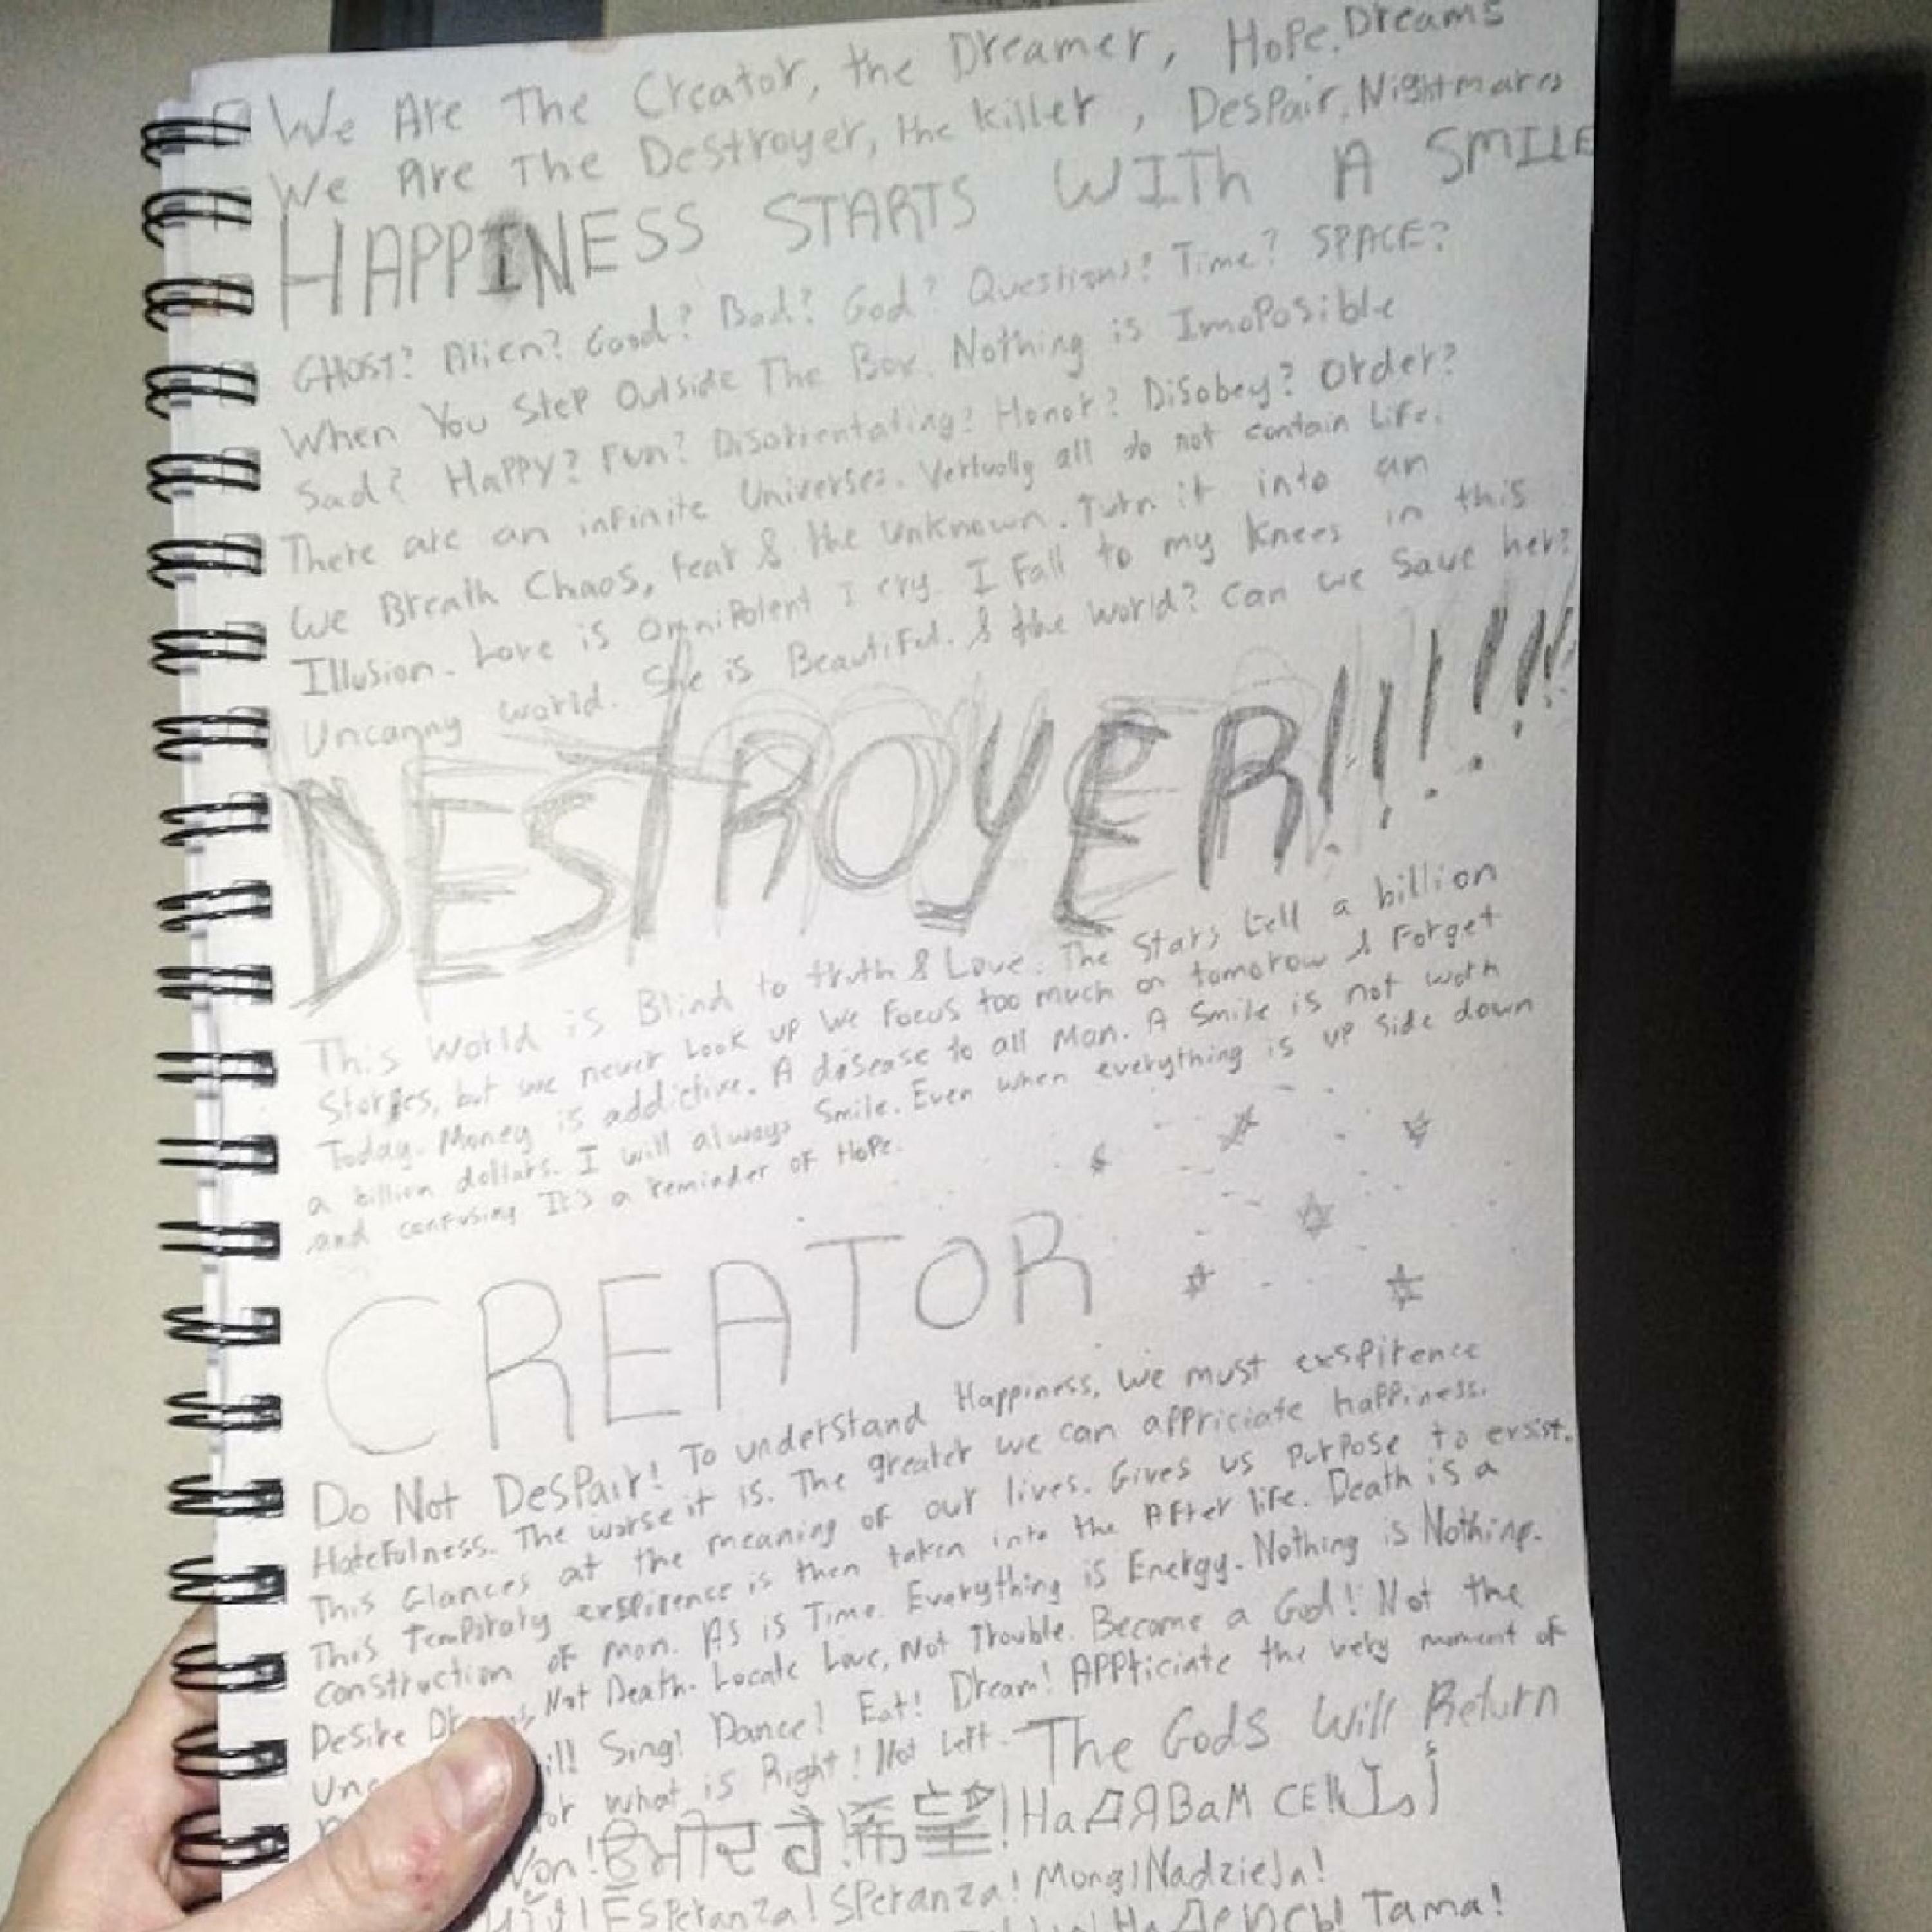 We Are The Creator, the Dreamer, Hope, Dreams
We Are The Destroyer, the killer, Despair, Nightmares
HAPPINESS STARTS WITh A SMILE
GHOST? Alien? Good? Bad? God? Questions? Time? SPACE?
When You Step Outside The Box. Nothing is ImoPosible
Sad? Happy? Fun? Disorientating? Honor? Disobey? Order?
There are an infinite Universes. Vertually all do not contain Life.
We Breath Chaos, fear & the Unknown. Turn it into an
Illusion. Love is OmniPotent I cry. I Fall to my knees in this
Uncanny world. She is Beautiful. & the world? Can we Save her?
DESTROYER!!!!!!!
This World is Blind to truth & Love. The Stars tell a billion
Stories, but we never Look up We Focus too much on tomorow & Forget
Today. Money is addictive. A disease to all Man. A Smile is not woth
a billion dollars. I will always Smile. Even when everything is up side down
and confusing It's a reminder of Hope.
CREATOR
Do Not Despair! To understand Happiness, we must exspirence
Hatefulness. The worse it is. The greater we can appriciate happiness.
This Glances at the meaning of our lives. Gives us purpose to exsist.
This Temporary exspirence is then taken into the After life. Death is a
construction of man. As is Time. Everything is Energy. Nothing is Nothing.
Desire Not Death. Locate Love, Not Trouble. Become a God! Not the
Sing! Dance! Eat! Dream! Appriciate the very moment of
what is Right! Not Left. The Gods Will Return
ਉਮੀਦ ਹੈ! 希望! НаДЯВаМ СЕ أمل
Esperanza! Speranza! Mong! Nadzieja!
Tama!